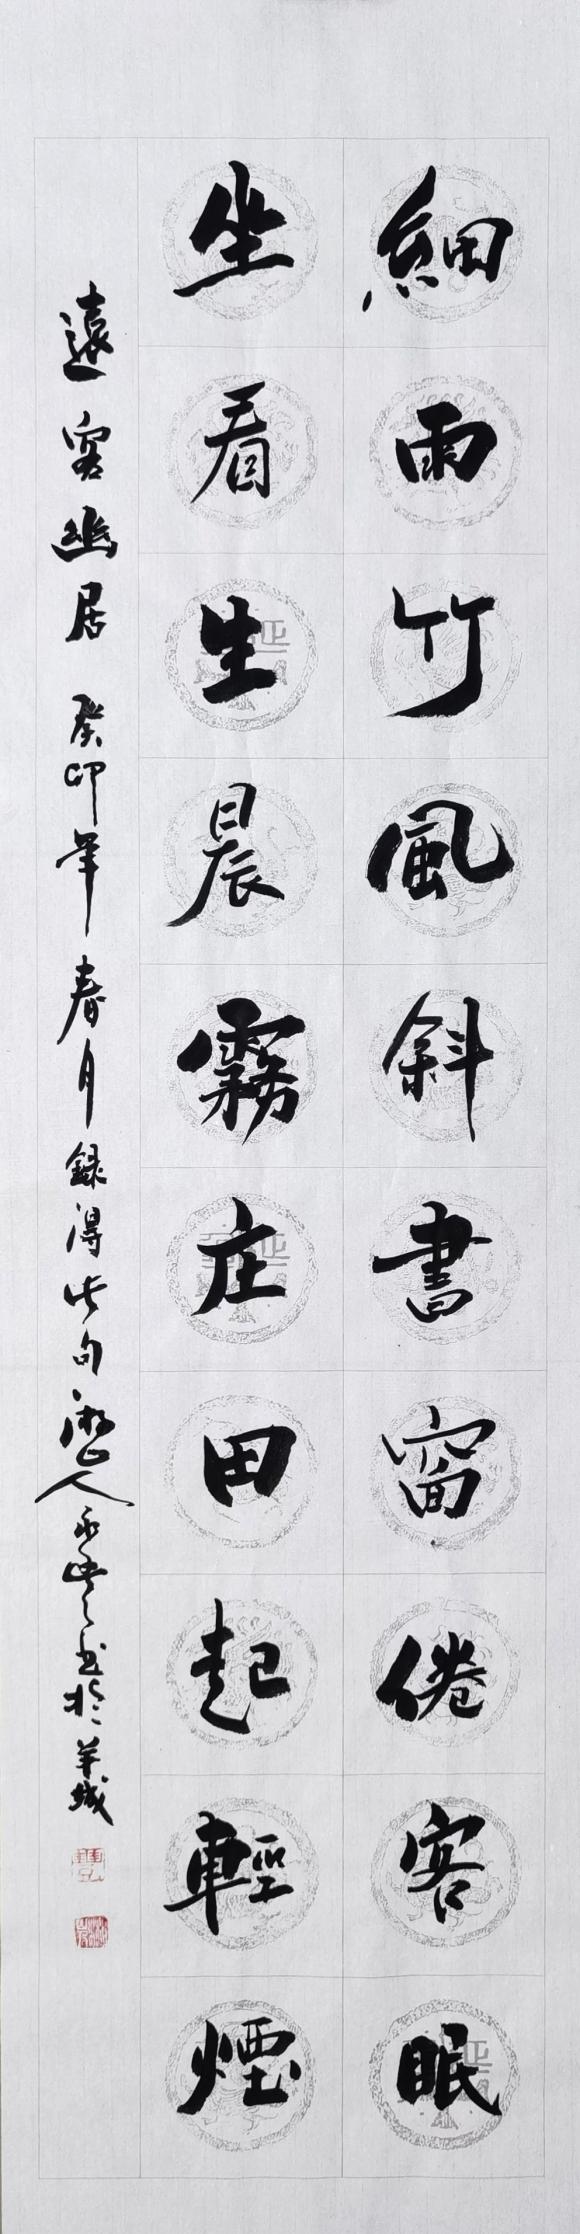 細雨竹風斜書窗倦客眠
坐看生晨霧庄田起輕煙
遠客幽居 癸卯年春月錄得此句 湘山人永豐書於羊城